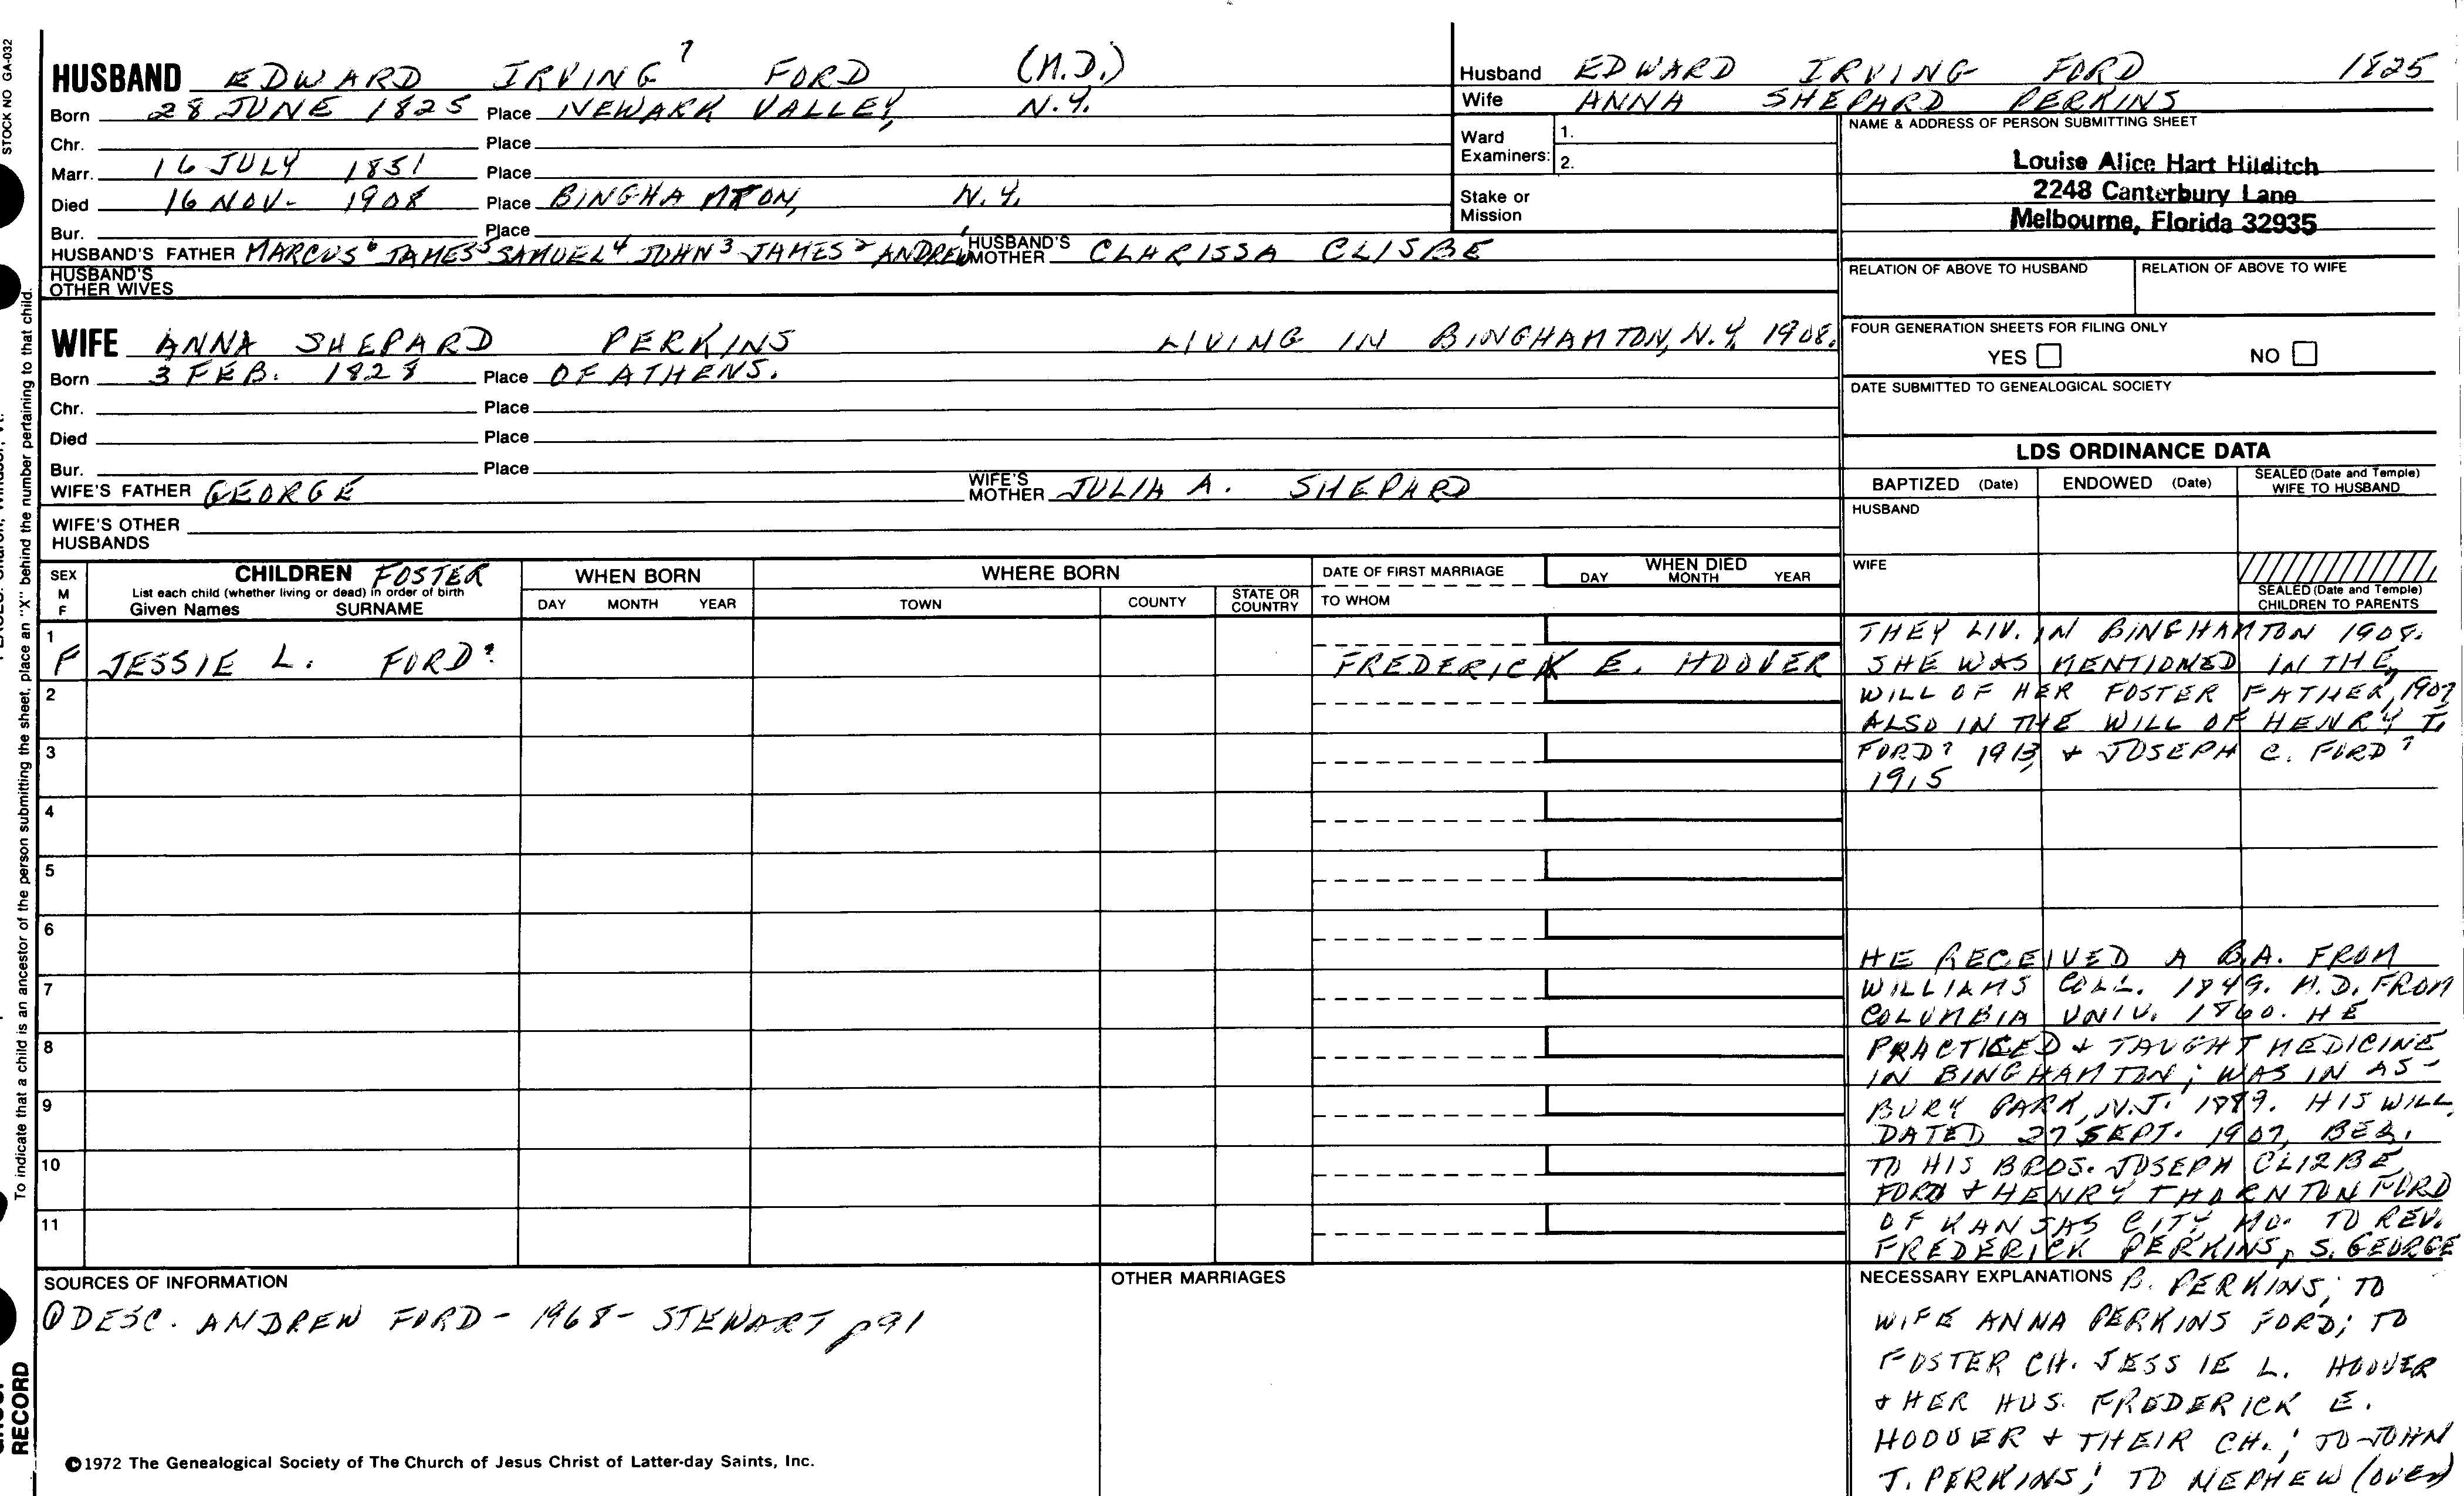 STOCK NO GA-032
HUSBAND EDWARD IRVING 7 FORD (M.D.)
Born 28 JUNE 1825 Place NEWARK VALLEY, N.Y.
Chr. Place
Marr. 16 JULY 1851 Place
Died 16 NOV- 1908 Place BINGHAMTON, N.Y.
Bur. Place
HUSBAND'S FATHER MARCUS 6 JAMES 5 SAMUEL 4 JOHN 3 JAMES 2 ANDREW 1 HUSBAND'S MOTHER CLARISSA CLISBE
HUSBAND'S OTHER WIVES
WIFE ANNA SHEPARD PERKINS LIVING IN BINGHAMTON, N.Y. 1908.
Born 3 FEB. 1828 Place OF ATHENS.
Chr. Place
Died Place
Bur. Place
WIFE'S FATHER GEORGE WIFE'S MOTHER JULIA A. SHEPARD
WIFE'S OTHER HUSBANDS
Husband EDWARD IRVING FORD 1825
Wife ANNA SHEPARD PERKINS
Ward Examiners: 1.
2.
Stake or Mission
NAME & ADDRESS OF PERSON SUBMITTING SHEET
Louise Alice Hart Hilditch
2248 Canterbury Lane
Melbourne, Florida 32935
RELATION OF ABOVE TO HUSBAND RELATION OF ABOVE TO WIFE
FOUR GENERATION SHEETS FOR FILING ONLY
YES NO
DATE SUBMITTED TO GENEALOGICAL SOCIETY
LDS ORDINANCE DATA
BAPTIZED (Date) ENDOWED (Date) SEALED (Date and Temple) WIFE TO HUSBAND
HUSBAND
WIFE
SEALED (Date and Temple) CHILDREN TO PARENTS
SEX M F
CHILDREN FOSTER
List each child (whether living or dead) in order of birth
Given Names SURNAME
WHEN BORN
DAY MONTH YEAR
WHERE BORN
TOWN COUNTY STATE OR COUNTRY
DATE OF FIRST MARRIAGE
TO WHOM
WHEN DIED
DAY MONTH YEAR
1
F JESSIE L. FORD? FREDERICK E. HOOVER
2
3
4
5
6
7
8
9
10
11
THEY LIV. IN BINGHAMTON 1908.
SHE WAS MENTIONED IN THE
WILL OF HER FOSTER FATHER, 1907
ALSO IN THE WILL OF HENRY T.
FORD 7 1913 + JOSEPH C. FORD 7
1915
HE RECEIVED A B.A. FROM
WILLIAMS COLL. 1849. M.D. FROM
COLUMBIA UNIV. 1860. HE
PRACTICED + TAUGHT MEDICINE
IN BINGHAMTON; WAS IN AS-
BURY PARK, N.J. 1889. HIS WILL
DATED 27 SEPT. 1907, BEQ.
TO HIS BROS. JOSEPH CLISBE
FORD + HENRY THORNTON FORD
OF KANSAS CITY, MO. TO REV.
FREDERICK PERKINS, S. GEORGE
SOURCES OF INFORMATION
① DESC. ANDREW FORD - 1968 - STEWART p91
OTHER MARRIAGES
NECESSARY EXPLANATIONS B. PERKINS; TO
WIFE ANNA PERKINS FORD; TO
FOSTER CH. JESSIE L. HOOVER
+ HER HUS. FREDERICK E.
HOOVER + THEIR CH.; TO JOHN
T. PERKINS; TO NEPHEW (OVER)
To indicate that a child is an ancestor of the person submitting the sheet, place an "X" behind the number pertaining to that child.
RECORD
©1972 The Genealogical Society of The Church of Jesus Christ of Latter-day Saints, Inc.